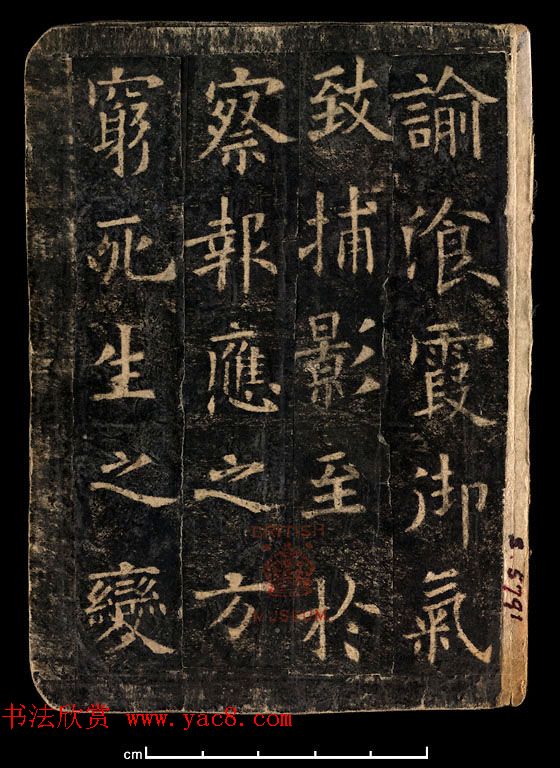 諭飡霞御氣
致捕影至於
察報應之方
窮死生之變
BRITISH
MUSEUM
S.5791
书法欣赏 www.yac8.com
cm